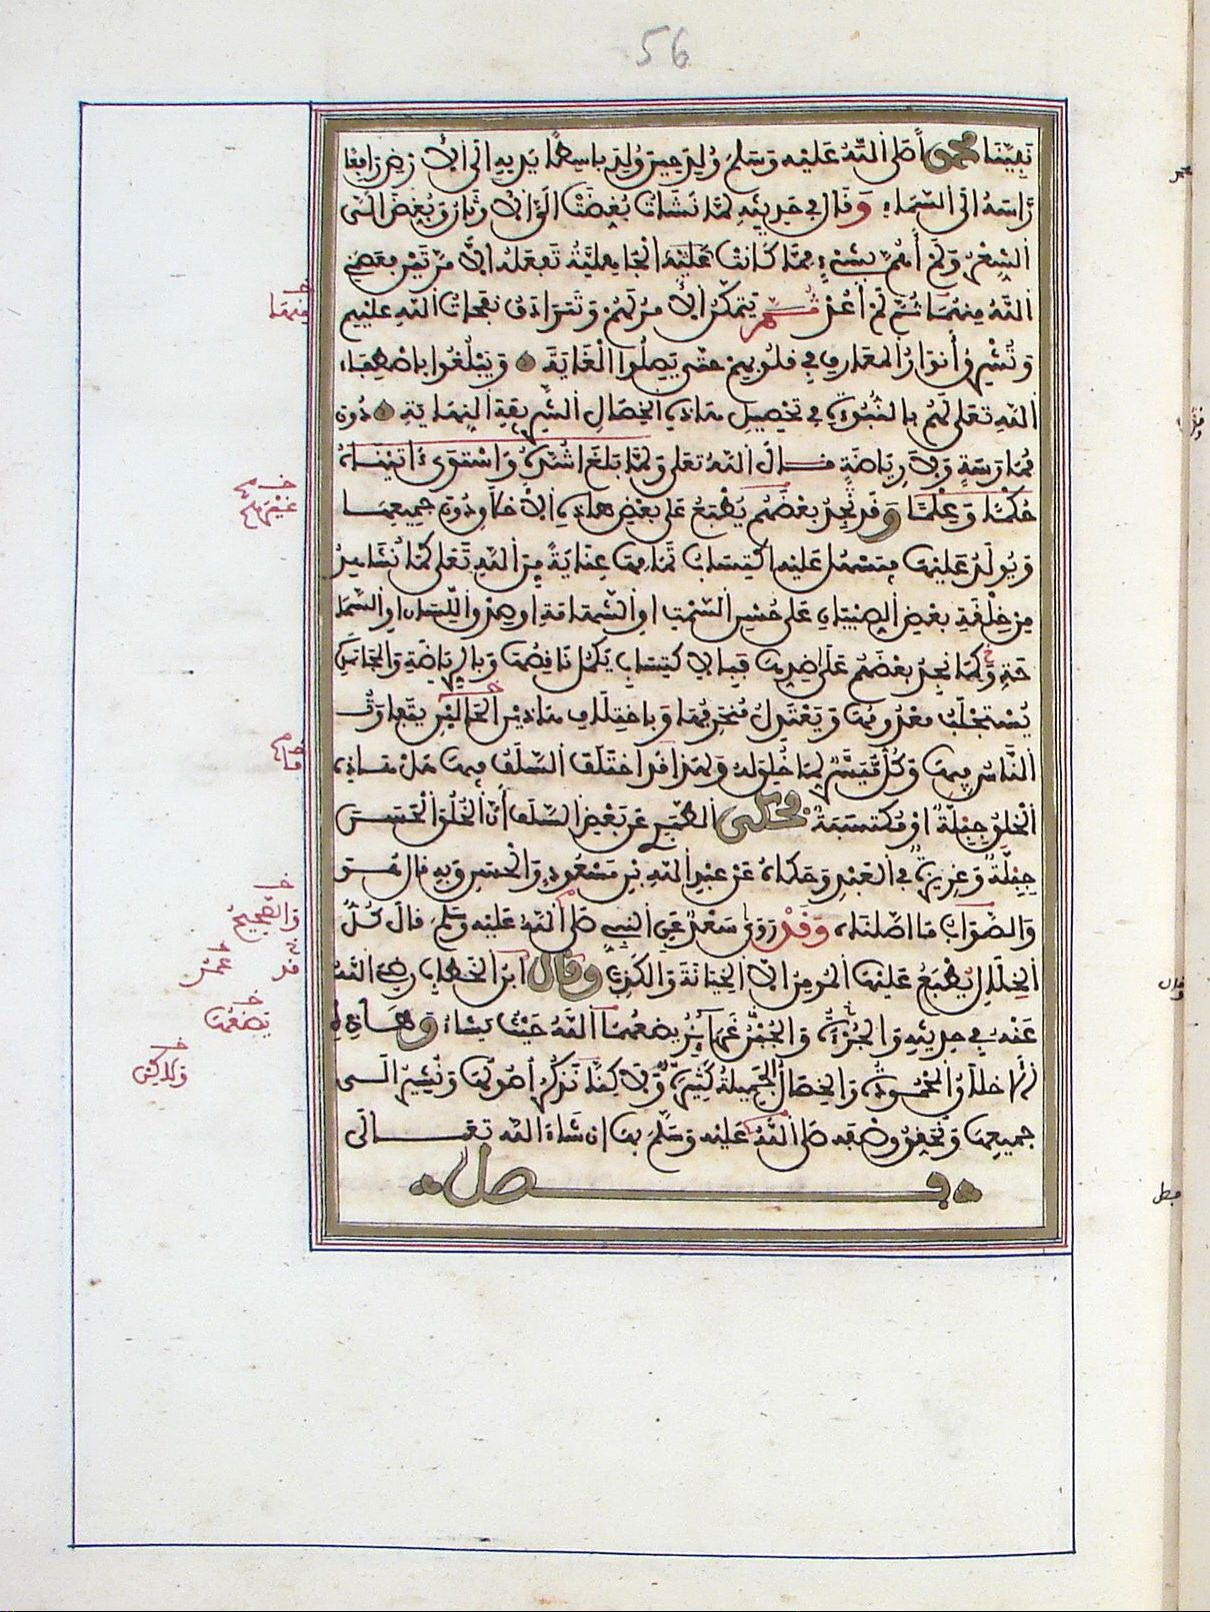 56
نبينا محمدا صلى الله عليه وسلم ولد حين ولد باسطا يديه الى الارض رافعا
راسه الى السماء وقال في حديثه لما نشات بغضت الي الاوثان وبغض الي
الشعر ولم أهم بشيء مما كانت الجاهلية تفعله الا مرتين فعصمني
الله منهما ثم لم أعد ثم يتمكن الأمر لهم وتترادف نفحات الله عليهم
وتشرق أنوار المعارف في قلوبهم حتى يصلوا الغاية ويبلغوا باصطفاء
الله تعلى لهم بالنبوة في تحصيل هذه الخصال الشريفة النهاية دون
ممارسة ولا رياضة قال الله تعلى ولما بلغ اشده واستوى ءاتيناه
حكما وعلما وقد نجد بعضهم يطبع على بعض هذه الأخلاق دون جميعها
ويولد عليها فيسهل عليه اكتساب تمامها عناية من الله تعلى كما نشاهد
من خلقة بعض الصبيان على حسن السمت او الشهامة او صدق اللسان او السما
حة وكما نجد بعضهم على ضدها فبالاكتساب يكمل ناقصها وبالرياضة والمجاهدة
يستجلب معدومها ويعتدل منحرفها وباختلاف هاذين الحالين يتفاوت
الناس فيها وكل ميسر لما خلق له ولهذا قد اختلف السلف فيها هل هذا
الخلق جبلة او مكتسبة فحكى الطبري عن بعض السلف أن الخلق الحسن
جبلة وغريزة في العبد وحكاه عن عبد الله بن مسعود والحسن وبه قال هو
والصواب ما اصلناه وقد روى سعد عن النبي صلى الله عليه وسلم قال كل
الخلال يطبع عليها المومن الا الخيانة والكذب وقال ابن الخطاب رضي الله
عنه في حديثه والجرأة والجبن غرائز يضعهما الله حيث يشاء وهاذه
الاخلاق المحمودة والخصال الجميلة كثيرة ولاكننا نذكر أصولها ونشير الى
جميعها ونحقق وصفه صلى الله عليه وسلم بها ان شاء الله تعالى
فصل
منهما
غيرهم
والصحيح
يضعها
ولاكن